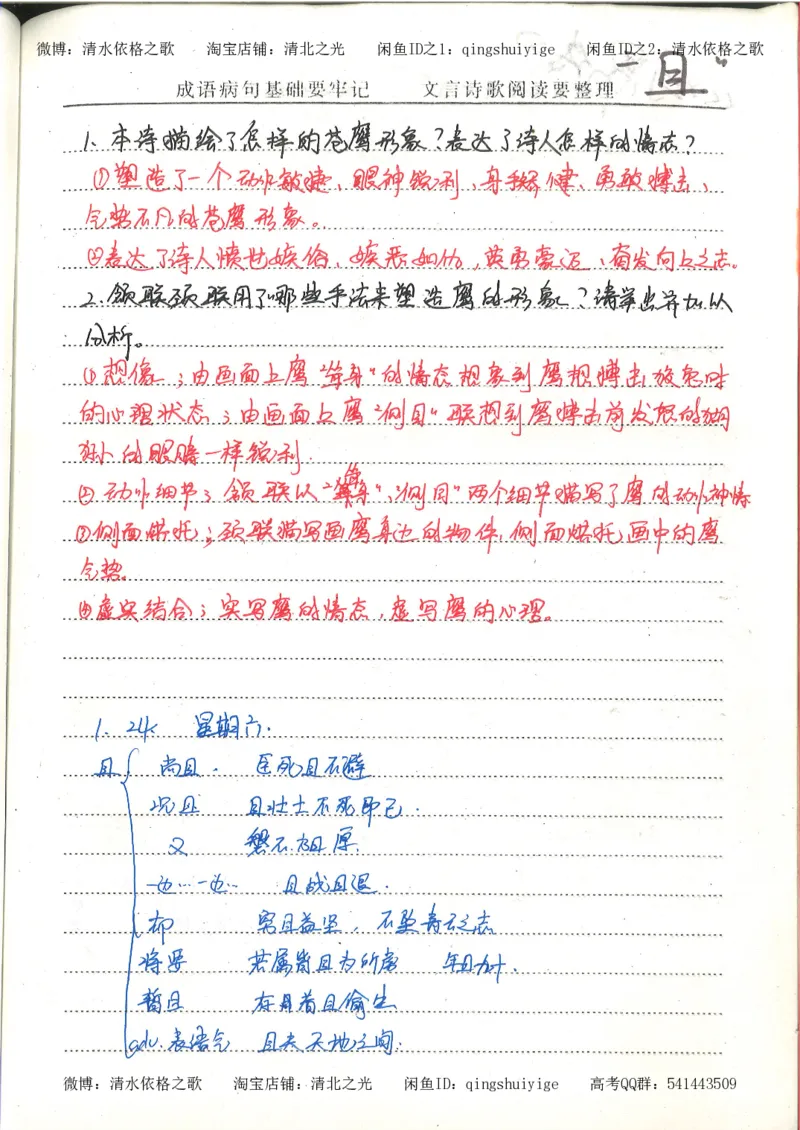 微博：清水依格之歌 淘宝店铺：清北之光 闲鱼ID之1：qingshuiyige 闲鱼ID之2：清水依格之歌
成语病句基础要牢记 文言诗歌阅读要整理 一“且”
1、本诗描绘了怎样的苍鹰形象？表达了诗人怎样的情志？
①塑造了一个动作敏捷、眼神锐利、身手矫健、勇敢搏击、
气势不凡的苍鹰形象。
②表达了诗人愤世嫉俗、嫉恶如仇，英勇豪迈、奋发向上之志。
2、颔联颈联用了哪些手法来塑造鹰的形象？请举出并加以
分析。
①想像；由画面上鹰“㧐身”的情态想象到鹰想搏击放飞时
的心理状态；由画面上鹰“侧目”联想到鹰搏击前发怒的猢
狲的眼睛一样锐利.
②动作细节；颔联以“㧐身”、“侧目”两个细节描写了鹰的动作神情
③侧面烘托；颈联描写画鹰身边的物件，侧面烘托画中的鹰
气势。
④虚实结合；实写鹰的情态，虚写鹰的心理。
1. 24. 星期六.
且 尚且. 臣死且不避
况且 且壮士不死即已.
又
一边…一边… 且战且退.
却 穷且益坚，不坠青云之志
将要 若属皆且为所虏 年且九十.
暂且 存者且偷生
adv.表语气 且夫天地之间.
微博：清水依格之歌 淘宝店铺：清北之光 闲鱼ID：qingshuiyige 高考QQ群：541443509